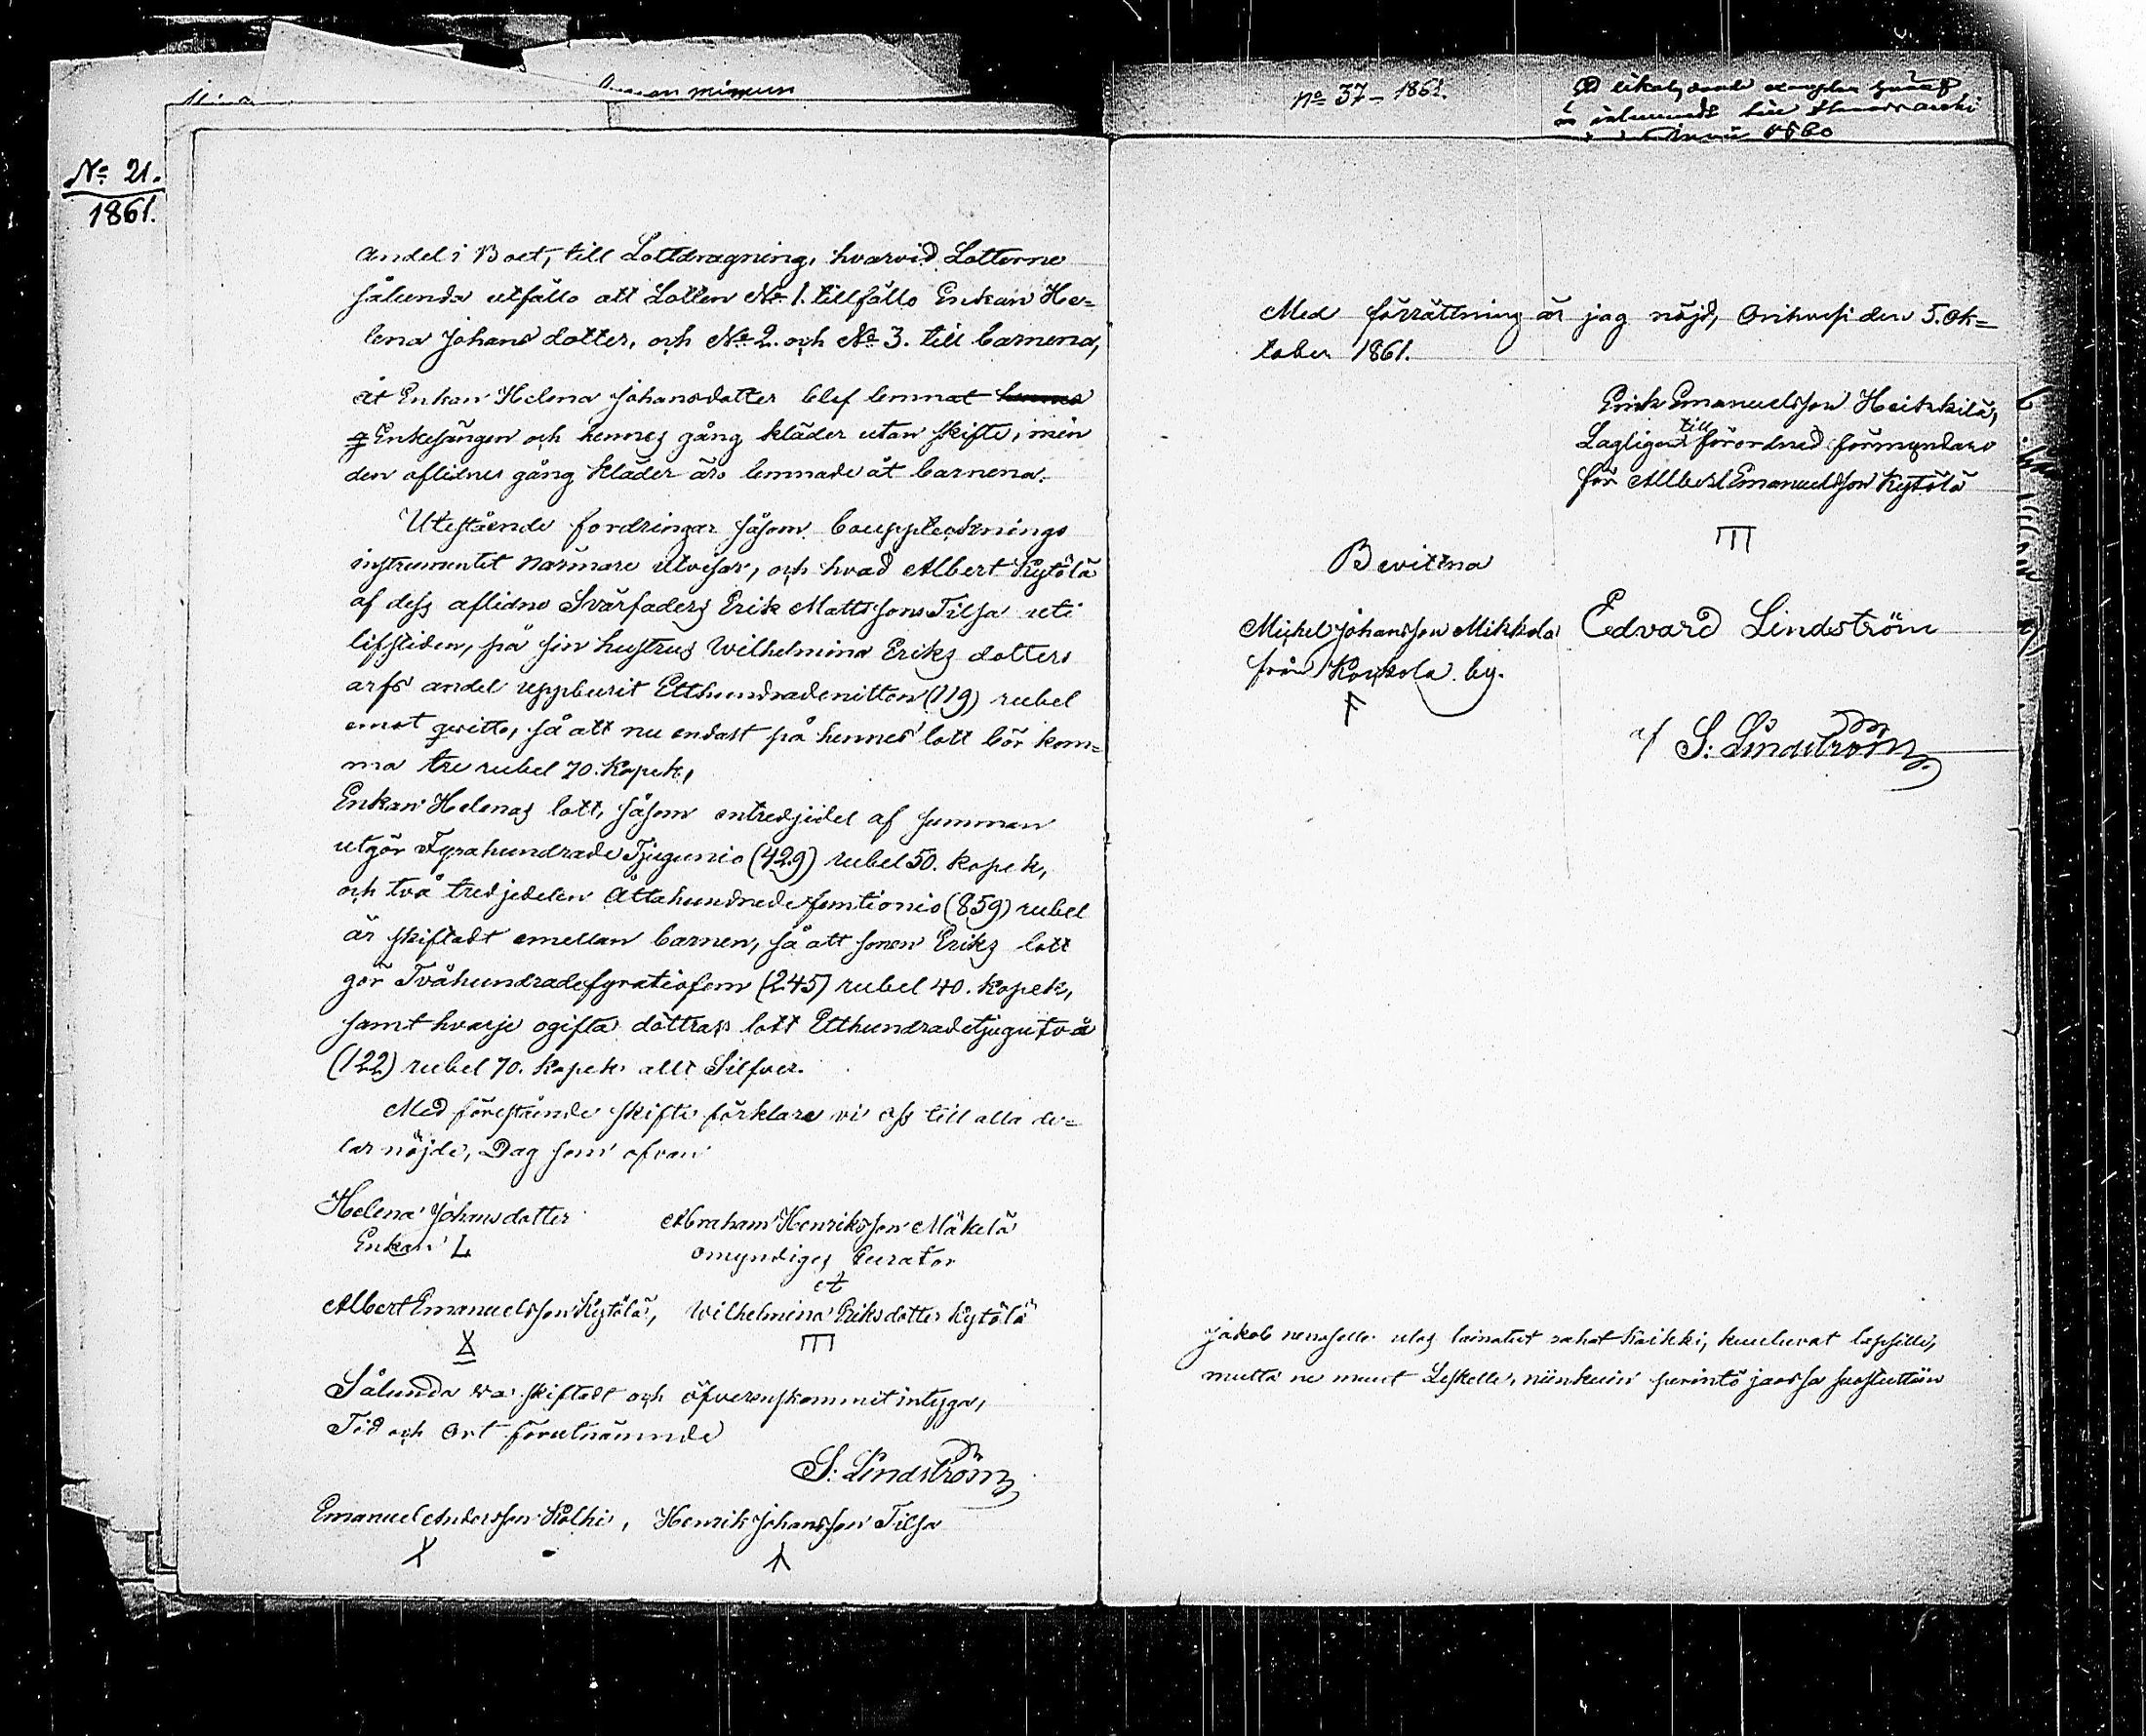 No 21.
1861.
Andel i Boet, till Lottdragning, hvarvid Lotterne
sålunda utföllo att Lotten No 1. tillföllo Enkan He=
lena Johans dotter, och No 2. och No 3. till barnena,
åt Enkan Helena Johansdotter blef lemnat
Enkesängen och hennes gång kläder utan skifte, men
den aflidnes gång kläder äro lemnade åt barnena.
Utestående fordringar såsom boupptecknings
instrumentet närmare utvisar, och hvad Albert Kytölä
af dess aflidne Svärfaders Erik Mattssons Tilsa uti
lifstiden, på sin hustrus Wilhelmina Eriks dotters
arfs andel uppburit Etthundradenitton (119) rubel
emot qvitto, så att nu endast på hennes lott bör kom=
ma tre rubel 70. kopek,
Enkan Helenas lott, såsom entredjedel af summan
utgör Fyrahundrade Tjugunio (429) rubel 50. kopek,
och två tredjedelen Åttahundrade femtionio (859) rubel
är skiftadt emellan barnen, så att sonen Eriks lott
gör Tvåhundradefyratiofem (245) rubel 40. kopek,
samt hvarje ogifta döttrars lott Etthundradetjugutvå
(122) rubel 70. kopek allt Silfver.
Med förestående skifte förklara vi oss till alla de=
lar nöjde, Dag som ofvan
Helena Johansdotter
Enkan
Abraham Henriksson Mäkelä
omyndiges Curator
et
Albert Emanuelsson Kytölä,
Wilhelmina Eriksdotter Kytölä
Sålunda va skiftadt och öfverenskommit intyga,
Tid och ort förutnämnde
S. Lindström
Emanuel Andersson Kolhi,
Henrik Johansson Tilsa
No 37 - 1861.
Med förrättning är jag nöjd, den 5. Ok=
tober 1861.
Erik Emanuelsson Heikkilä,
Lagligen till förordned förmyndare
för Allbert Emanuelsson Kytölä
Bevittna
Michel Johansson Mikkola
från Koukola by.
Edvard Lindström
af S. Lindström
Jakob ulos lainatut rahat kaikki, kuuluvat lapsille,
mutta ne muut Leskelle, niinkuin perintö jaossa suostuttiin